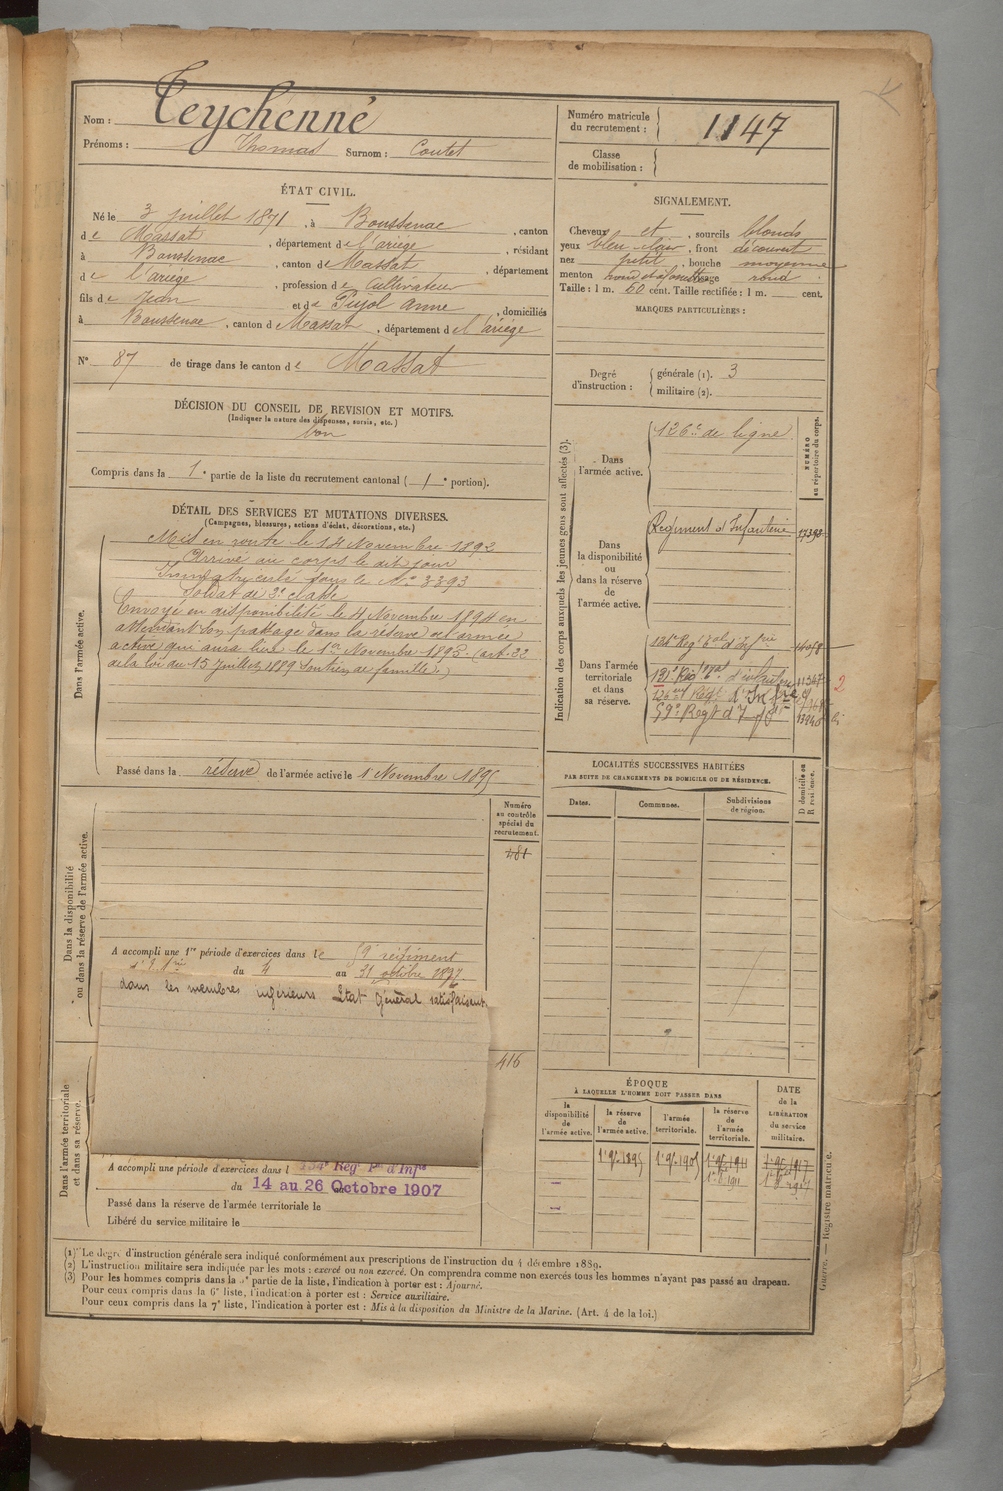 Nom : Teychenné
Prénoms : Thomas Surnom : Coutet
Numéro matricule
du recrutement : 1147
Classe
de mobilisation :
ÉTAT CIVIL.
Né le 3 juillet 1871, à Boussenac, canton
de Massat, département de l'ariège, résidant
à Boussenac, canton de Massat, département
de l'ariège, profession de Cultivateur
fils de Jean et de Pujol anne, domiciliés
à Boussenac, canton de Massat, département de l'ariège
N° 87 de tirage dans le canton de Massat
DÉCISION DU CONSEIL DE REVISION ET MOTIFS.
(Indiquer la nature des dispenses, sursis, etc.)
bon
Compris dans la 1e partie de la liste du recrutement cantonal (1e portion).
SIGNALEMENT.
Cheveux et, sourcils blonds
yeux bleu-clair, front découvert
nez petit, bouche moyenne
menton rond et à fossette visage rond
Taille : 1 m. 60 cent. Taille rectifiée : 1 m. cent.
MARQUES PARTICULIÈRES :
Degré
d'instruction :
générale (1). 3
militaire (2).
DÉTAIL DES SERVICES ET MUTATIONS DIVERSES.
(Campagnes, blessures, actions d'éclat, décorations, etc.)
Dans l'armée active.
Mis en route le 14 Novembre 1892
Arrivé au corps le dit jour
Immatriculé sous le N° 3393
Soldat de 2e classe
Envoyé en disponibilité le 4 Novembre 1894 en
attendant son passage dans la réserve de l'armée
active qui aura lieu le 1er Novembre 1895. (art. 22
de la loi du 15 Juillet 1889 Soutien de famille.)
Passé dans la réserve de l'armée active le 1 Novembre 1895
Indication des corps auxquels les jeunes gens sont affectés (3).
NUMÉRO
au répertoire du corps.
Dans
l'armée active.
126e de ligne
Dans
la disponibilité
ou
dans la réserve
de
l'armée active.
Régiment d'Infanterie
Dans l'armée
territoriale
et dans
sa réserve.
59e Regt d'Inf
2
Dans la disponibilité
ou dans la réserve de l'armée active.
Numéro
au contrôle
spécial du
recrutement.
481
A accompli une 1re période d'exercices dans le 59e régiment
d'Infie du 4 au 31 octobre 1897
dans les membres inférieurs Etat général satisfaisant
416
Dans l'armée territoriale
et dans sa réserve.
A accompli une période d'exercices dans l 134e Rég. Tal d'Infie
du 14 au 26 Octobre 1907
Passé dans la réserve de l'armée territoriale le
Libéré du service militaire le
LOCALITÉS SUCCESSIVES HABITÉES
PAR SUITE DE CHANGEMENTS DE DOMICILE OU DE RÉSIDENCE.
Dates.
Communes.
Subdivisions
de région.
D domicile ou
R résidence.
ÉPOQUE
À LAQUELLE L'HOMME DOIT PASSER DANS
la
disponibilité
de
l'armée active.
la réserve
de
l'armée active.
l'armée
territoriale.
la réserve
de
l'armée
territoriale.
DATE
de la
LIBÉRATION
du service
militaire.
1er 9bre 1895 1er 9bre 1905 1er 9bre 1911 1er 9bre 1917
(1) Le degré d'instruction générale sera indiqué conformément aux prescriptions de l'instruction du 4 décembre 1889.
(2) L'instruction militaire sera indiquée par les mots : exercé ou non exercé. On comprendra comme non exercés tous les hommes n'ayant pas passé au drapeau.
(3) Pour les hommes compris dans la 2e partie de la liste, l'indication à porter est : Ajourné.
Pour ceux compris dans la 6e liste, l'indication à porter est : Service auxiliaire.
Pour ceux compris dans la 7e liste, l'indication à porter est : Mis à la disposition du Ministre de la Marine. (Art. 4 de la loi.)
Guerre. — Registre matricule.